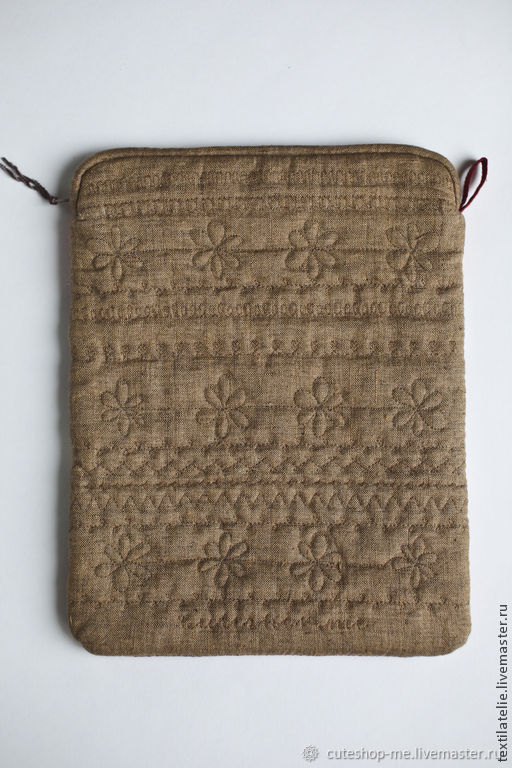 textilatelie.livemaster.ru
cuteshop-me.livemaster.ru